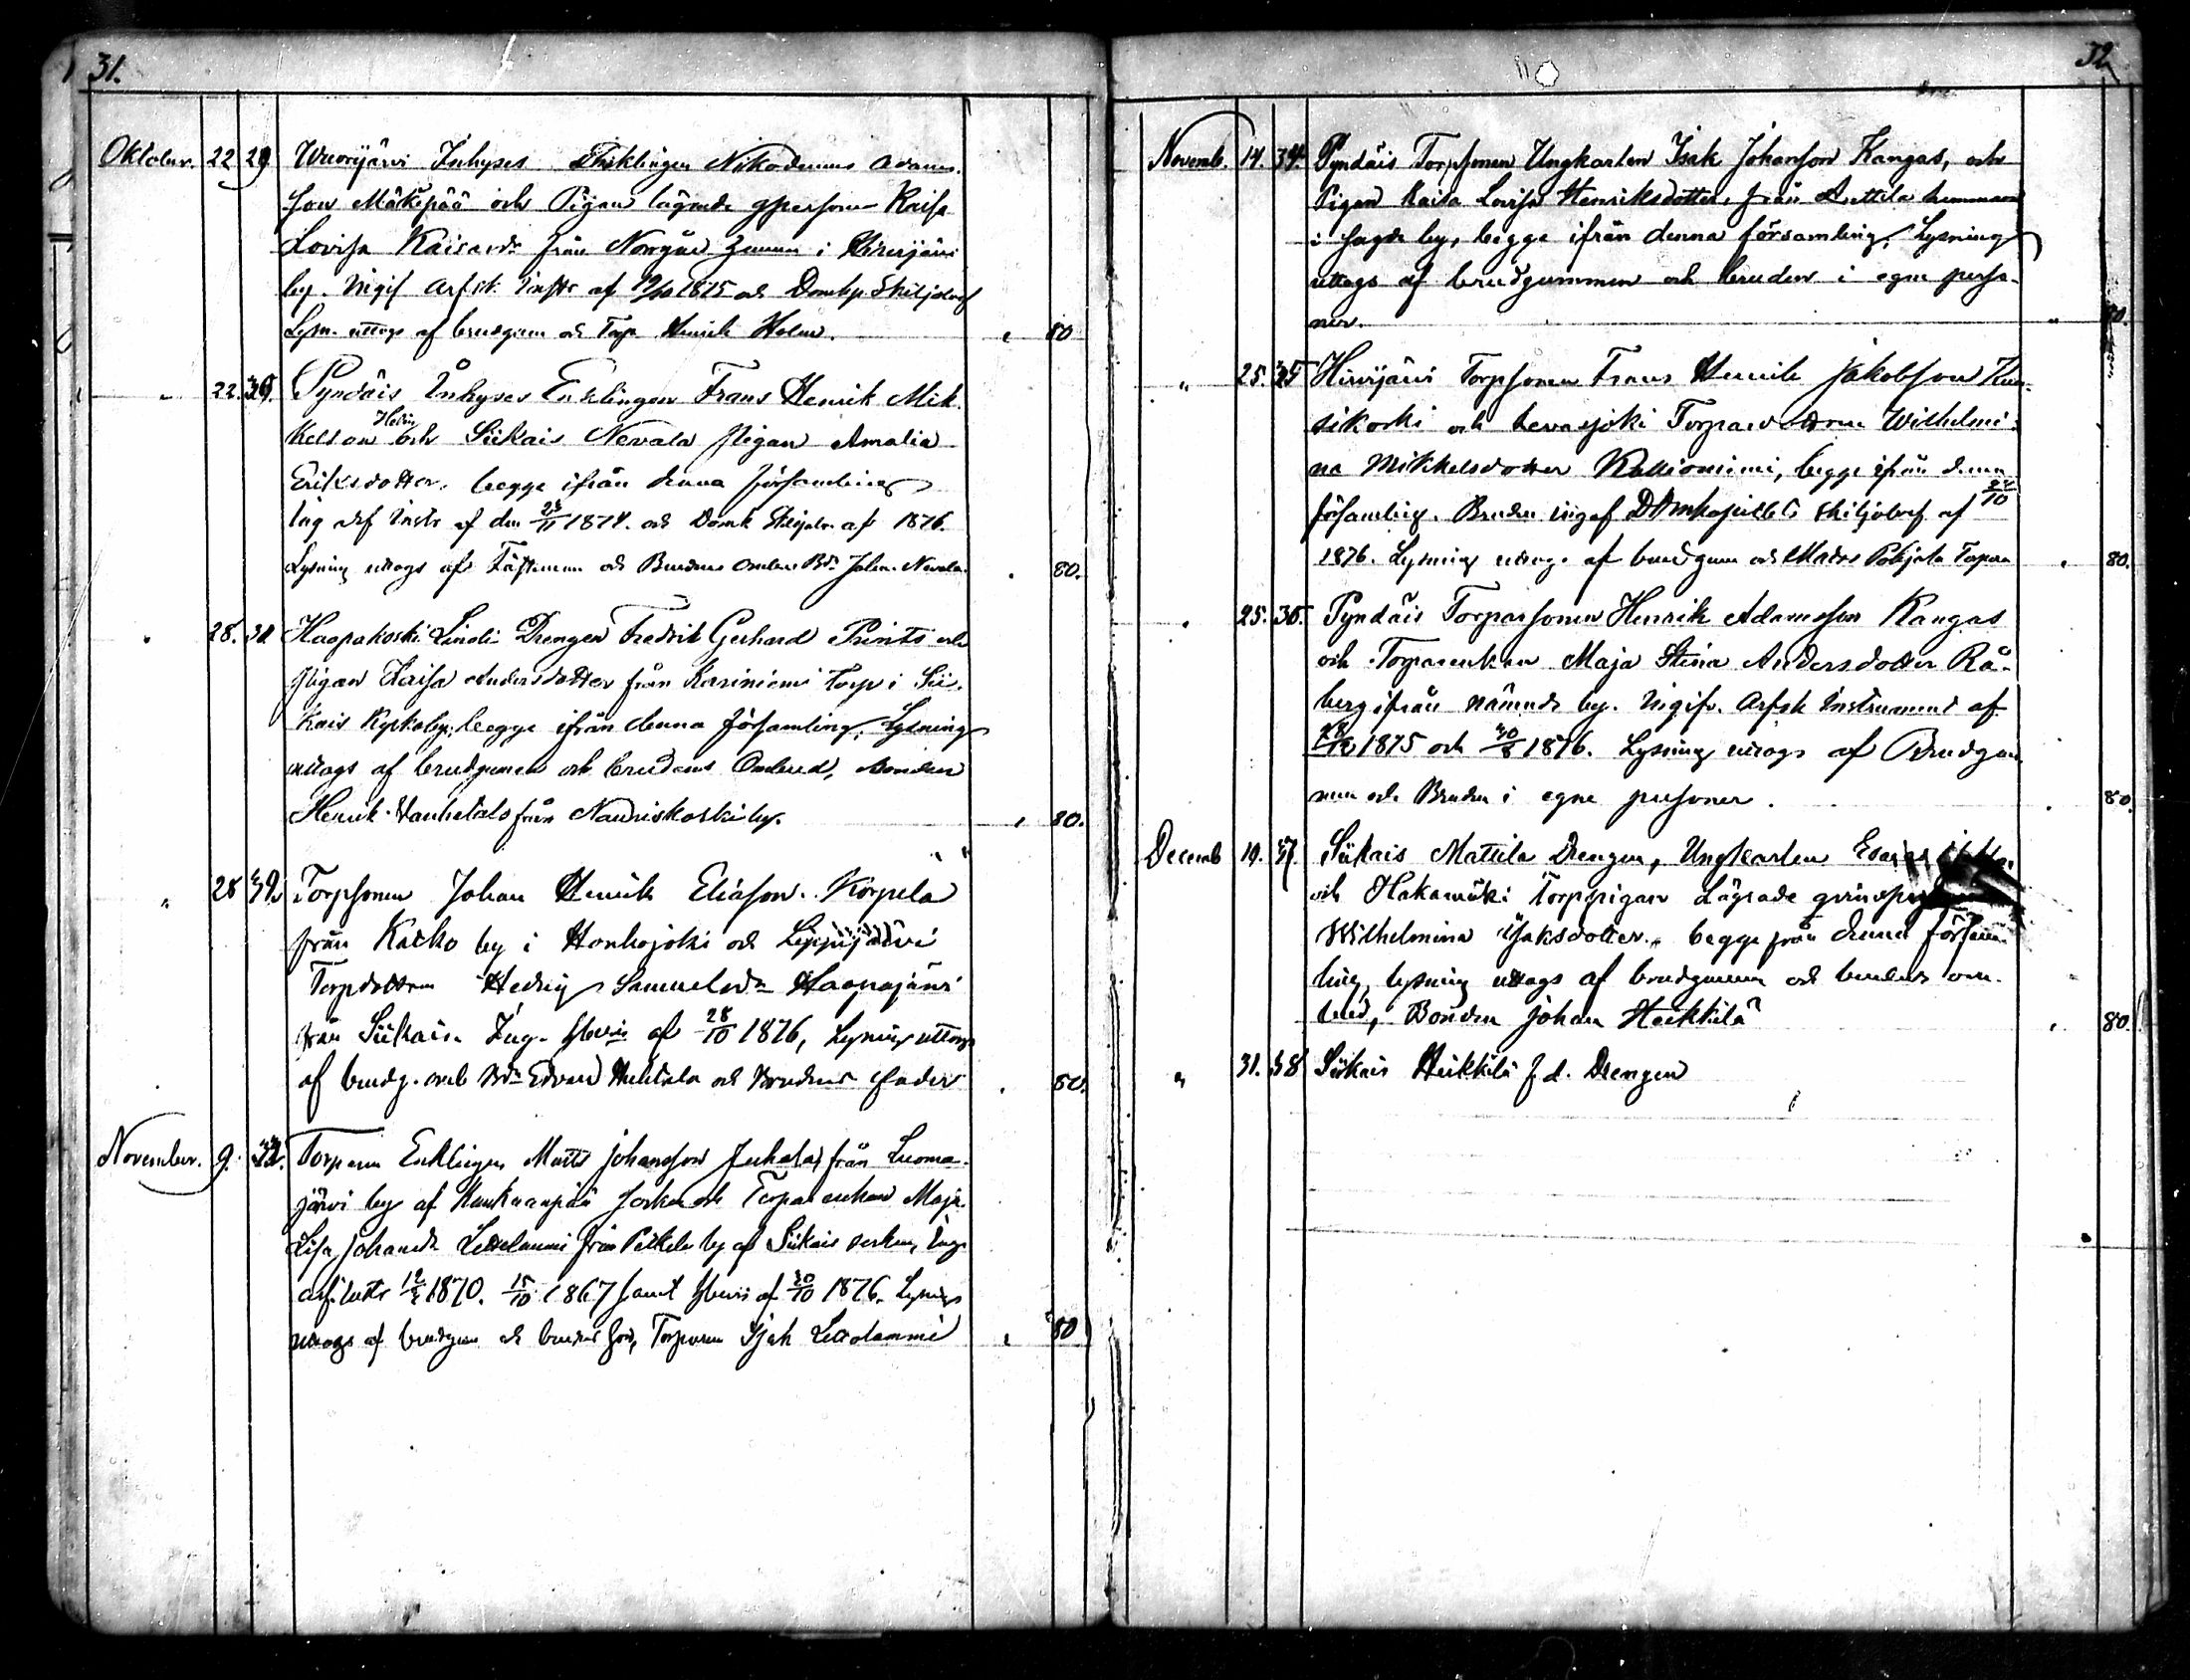 31.
Oktober. 22 29 Inhyses Enklingen Nikodemus Adams-
son Mäkipää och Pigan lägrade qpersonen Kaisa
Lovisa från Norrgård i Hirvijärvi
by. Ingif Arfsk. Instr af 19/10 1875 och Domkp Skiljobref
Lysn. uttogs af brudgum och Torp. Henrik Holm. " 80
" 22. 30. Pyndäis Inhyses Enklingen Frans Henrik Mik-
kelson Helin och Siikais Nevala Pigan Amalia
Eriksdotter, begge ifrån denna församling
Ing Arf Instr af den 23/11 1874. och Domk Skiljobr af 1876.
Lysning uttogs af Fästmannen och Brudens Ombud Bd. Johan Nevala. " 80.
" 28. 31 Haapakoski Lindi Drengen Fredrik Gerhard Prints och
Pigan Kaisa Andersdotter från Kariniemi Torp i Sii-
kais Kyrkoby, begge ifrån denna församling. Lysning
uttogs af brudgumen och brudens Ombud, bonden
Henrik Vanhatalo från Nauriskoski by. " 80.
" 28 32. Torpsonen Johan Henrik Eliasson Korpela
från Karko by i Honkajoki och Leppijärvi
Torpdottren Hedvig Samuelsdr Haapajärvi
från Siikais. Ing. fbevis af 28/10 1876, Lysning uttogs
af brudg. omb Bdn Edvard Huhtala och Brudens fader " 80.
November. 9. 33. Torparen Enklingen Matts Johansson Juhala från Luoma-
järvi by af Kankaanpää socken och Torparenkan Maja
Lisa Johansdr Lettelammi från Peikela by af Siikais socken, Ing.
arf. instr 12/2 1870. 15/10 1867 samt fbevis af 20/10 1876. Lysning
uttogs af brudgum och brudens far, Torparen Isak Lettolammi " 80
32
Novemb. 14. 34. Pyndäis Torpsonen Ungkarlen Isak Johansson Kangas, och
Pigan Kaisa Lovisa Henriksdotter, från Anttila hemman
i sagde by, begge ifrån denna församling. Lysning
uttogs af brudgummen och bruden i egne perso-
ner. " 80.
" 25. 35 Hirvijärvi Torpsonen Frans Henrik Jakobsson
och Levasjoki Torparedottren Wilhelmi-
na Mikkelsdotter Kallioniemi, begge ifrån denna
församling. Bruden ingaf Domkapitlets Skiljobref af 24/10
1876. Lysning uttogs af brudgum och Matts Pohjola Torpare " 80.
" 25. 36. Pyndäis Torparsonen Henrik Adamsson Kangas
och Torparenkan Maja Stina Andersdotter Rå-
berg ifrån nämnde by. Ingifv. Arfsk Instrument af
28/12 1875 och 30/8 1876. Lysning uttogs af Brudgu-
men och Bruden i egne personer. " 80.
Decemb 19. 37. Siikais Mattila Drengen, Ungkarlen
och Hakamäki Torppigan Lägrade
Wilhelmina Isaksdotter, begge från denna försam-
ling, lysning uttogs af brudgummen och brudens om-
bud, Bonden Johan Heikkilä " 80.
" 31. 38 Siikais Heikkilä f.d. Drengen